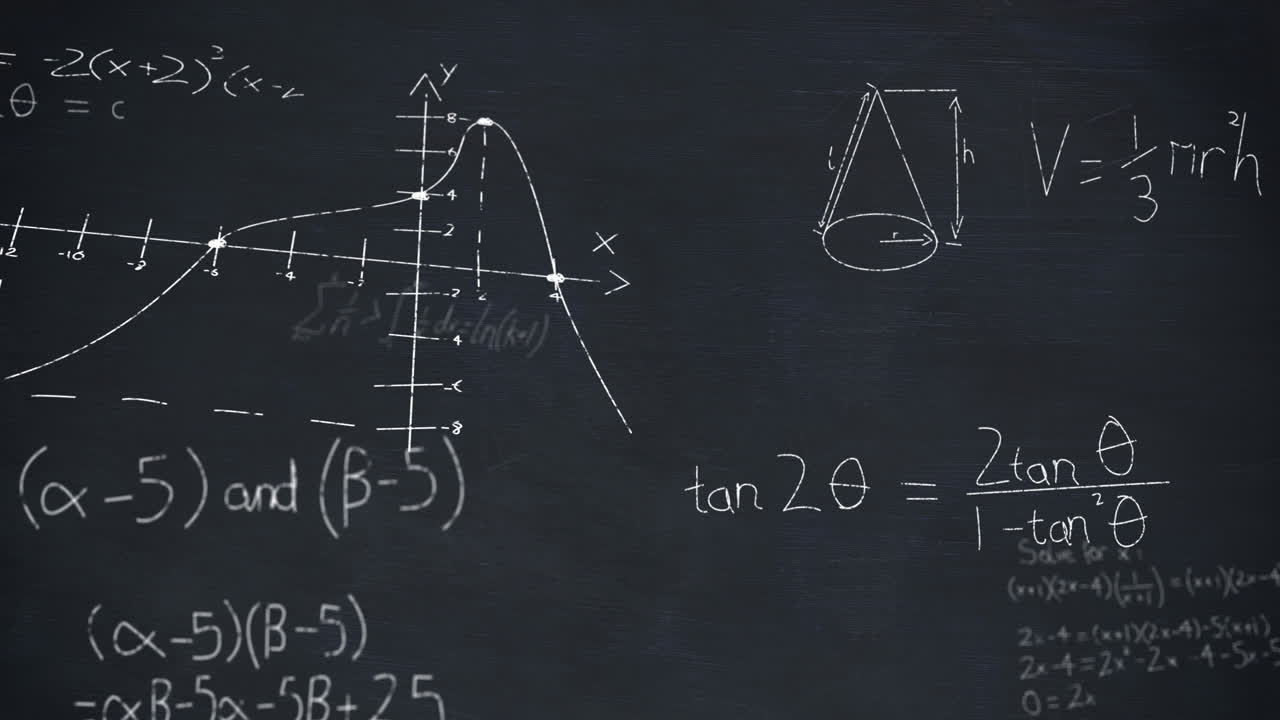 = -2(x+2)³(x-2
θ = c
Y
8
6
4
2
-12 -10 -8 -6 -4 -2 2 4
X
-2
4
-6
-8
l
h
r
V = 1/3 πr²h
∑ 1/n > ∫ 1/x dx = ln(k+1)
(α-5) and (β-5)
tan 2θ = 2tan θ / 1-tan²θ
Solve for x:
(x+1)(2x-4)(1/(x+1)) = (x+1)(2x-4
2x-4=(x+1)(2x-4)-5(x+1)
2x-4=2x²-2x-4-5x-5
0=2x
(α-5)(β-5)
=αβ-5α-5β+25